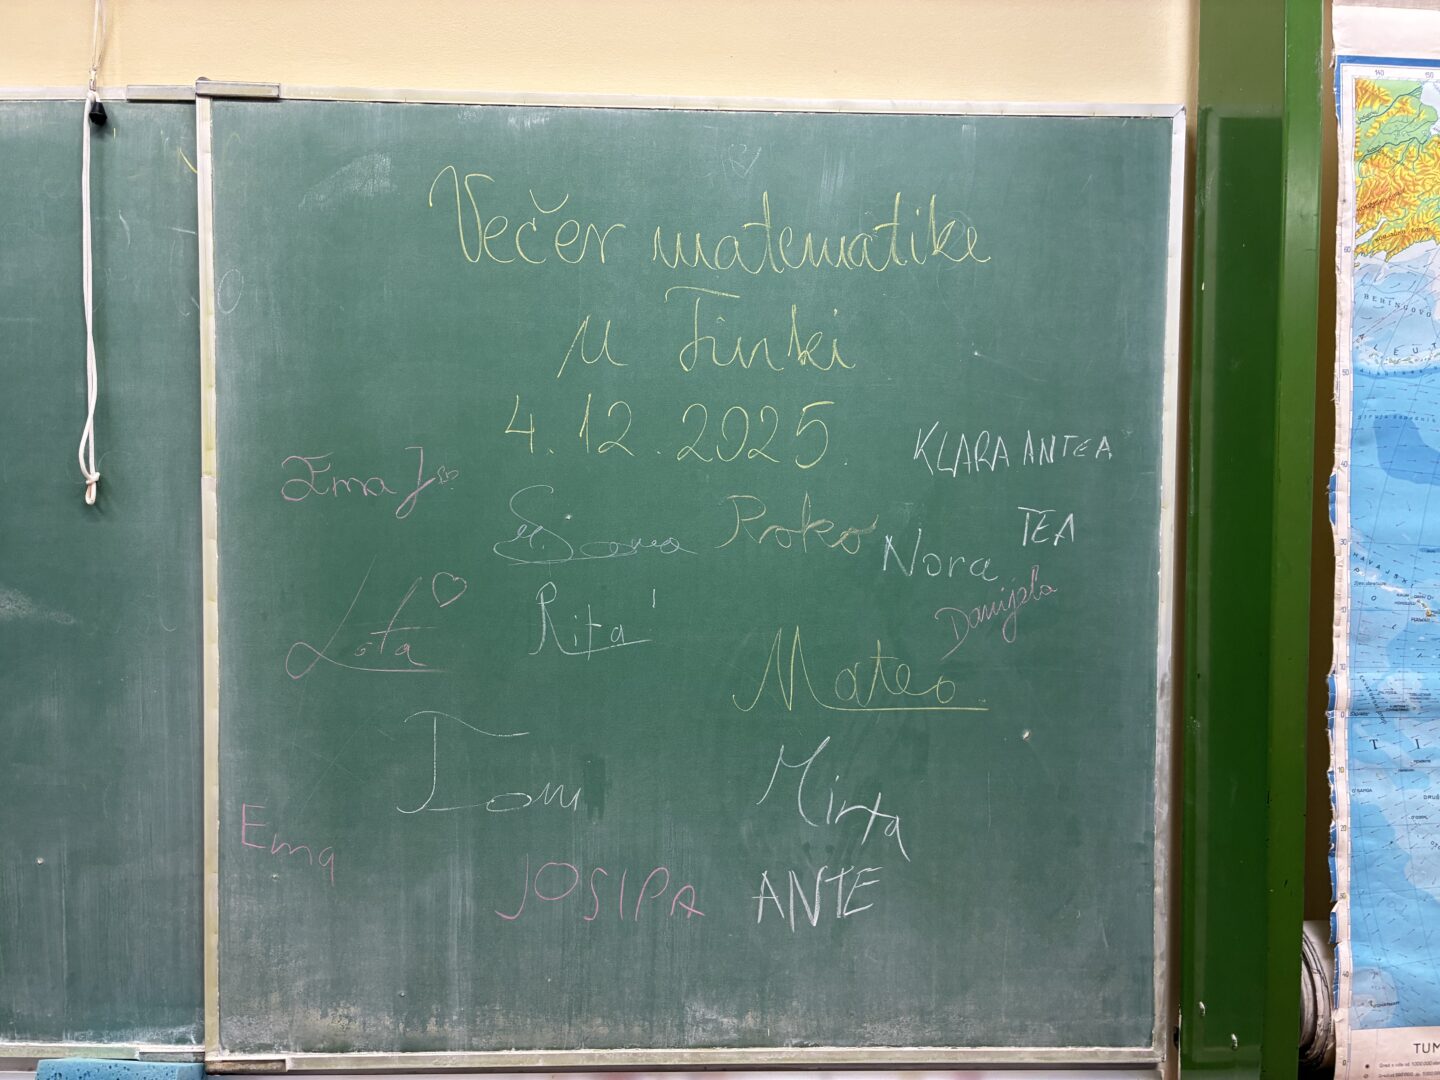 Večer matematike
u Finki
4.12.2025.
KLARA ANTEA
Ema J
Roko
Nora
TEA
Danijela
Lota
Rita
Mateo
Toni
Mirta
Ema
JOSIPA
ANTE
140
150
BERINGOVO
ALEUT
HAVAJSKI
TI
TUM